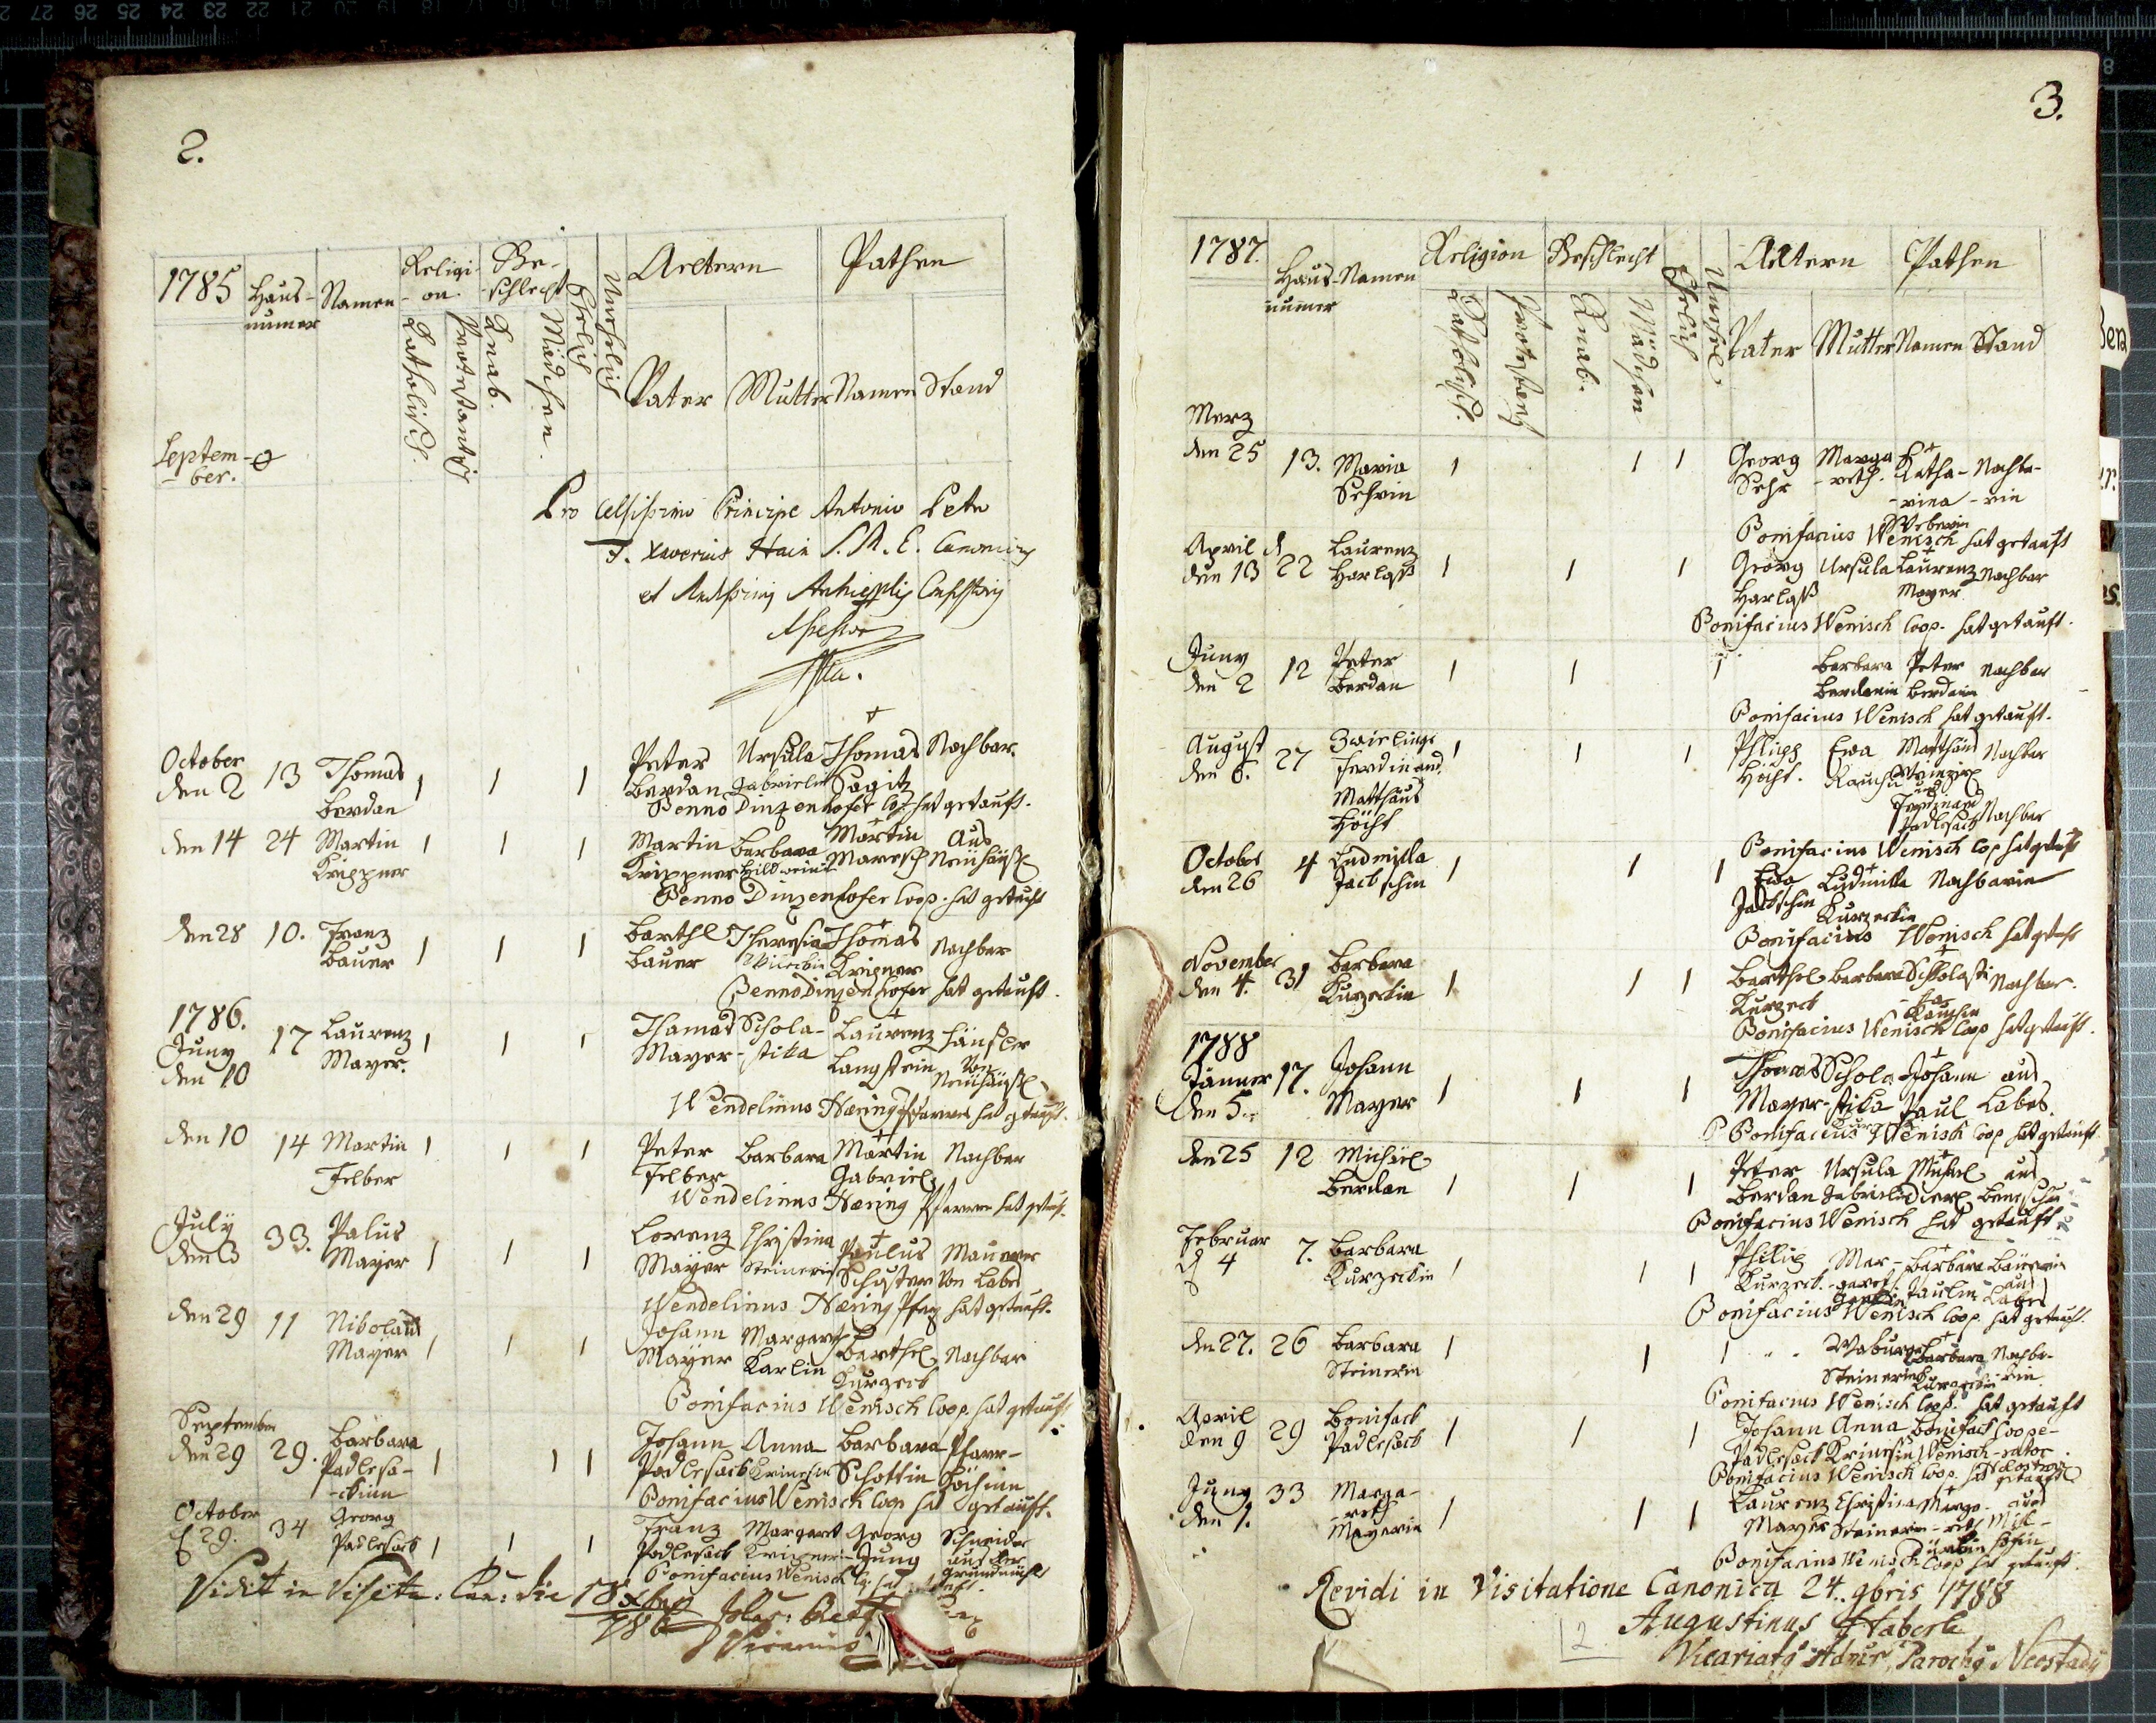 2.
1785 Haus- Namen Religi- Ge- Aeltern Pathen
numer on. schlecht Ehelich Unehelich
Katholisch. Protestantisch Knab. Mädchen. Vater Mutter Namen Stand
Septem-
ber.
Pro Celsissimo Principe Antonio Petro
F. Xaverius Hain S. R. E. Canonicus
et
October
den 2 13 Thomas 1 1 1 Peter Ursula Thomas Nachbar.
Berdan Berdan Gabrielin Sagitz
Benno Dinzenhofer Cop. hat getauft.
den 14 24 Martin 1 1 1 Martin Barbara Martin Aus
Krippner Krippner Maresch Neuhäusl
Benno Dinzenhofer Coop. hat getauft
den 28 10. Franz 1 1 1 Barthl Theresia Thomas Nachbar
Bauer Bauer Krigner
Benno Dinzenhofer hat getauft.
1786.
Juny 17 Laurenz 1 1 1 Thamas Schola- Laurenz Häusler
den 10 Mayer. Mayer -stika Langstein Von
Neuhäusl
Wendelinus Næring Pfarrer hat getauft.
den 10 14 Martin 1 1 1 Peter Barbara Martin Nachbar
Felber Felber Gabriel
Wendelinus Næring Pfarrer hat getauft.
July 33. Palus Lorenz Christina Paulus Maurer
den 3 Mayer 1 1 1 Mayer Steinerin Schuster Von Labes
Wendelinus Næring Pfarr hat getauft.
den 29 11 Nikolaus Johann Margareth Barthel Nachbar
Mayer 1 1 1 Mayer Karlin Kurzeck
Bonifacius Wenisch Coop. hat getauft
September
den 29 29. Barbara 1 1 1 Johann Anna Barbara Pfarr-
Padlesa- Padlesack Krinesin Schottin Köchinn
-ckinn Bonifacius Wenisch Coop hat getauft.
October Georg
d 29. 34 Padlesack 1 1 1 Franz Margaret Georg Schneider
Padlesack Jung aus der
Bonifacius Wenisch Grundmühl
Vidit in Visita: Can: die 18
786
Vicarius
3.
1787. Haus- Namen Religion Geschlecht Ehelich Unehel. Aeltern Pathen
numer Katholisch. Protestant Knab. Mädchen Vater Mutter Namen Stand
Merz
den 25 13. Maria 1 1 1 Georg Marga- Katha- Nachba-
Sehrin Sehr -reth. -rina -rin
Weberin
Bonifacius Wenisch hat getauft
April d Laurenz
den 13 22 Harlass 1 1 1 Georg Ursula Laurenz Nachbar
Harlass Mayer
Bonifacius Wenisch Coop. hat getauft.
Juny 12 Peter 1 1 1 Barbara Peter Nachbar
den 2 Berdan Berdanin Berdann
Bonifacius Wenisch hat getauft.
August 27 Zwirlinge 1 1 1 Philipp Ewa Matthäus Nachbar
den 6. Ferdinand Höcht.
Matthäus und
Höcht Ferdinand
Padlesack Nachbar
Bonifacius Wenisch Cop hat getauft
October 4 Ludmilla 1 1 1 Ewa Ludmilla Nachbarin
den 26 Jackschin Jackschin Kurzeckin
Bonifacius Wenisch hat getauft
November 31 Barbara 1 1 1 Barthel Barbara Scholasti- Nachbar.
den 4. Kurzeckin Kurzeck -ka
Bonifacius Wenisch Coop hat getauft.
1788
Jänner 17. Johann Thomas Schola- Johann aus
den 5. Mayer 1 1 1 Mayer -stika Paul Labes.
Bonifacius Wenisch Coop hat getauft
den 25 12 Michael Peter Ursula Michael aus
Berdan 1 1 1 Berdan Gabrielin
Bonifacius Wenisch hat getauft
Februar 7. Barbara Philip Mar- Barbara Bäuerin
d 4 Kurzeckin 1 1 1 Kurzeck -gareth Paulin aus Labes
Bonifacius Wenisch Coop. hat getauft.
den 27. 26 Barbara 1 1 1 Waburga Barbara Nachba-
Steinerin Steinerin Kurzeckin -rin
Bonifacius Wenisch Coop. hat getauft
April 29 Bonifack 1 1 1 Johann Anna Bonifack Coope-
den 9 Padlesack Padlesack Krinesin Wenisch -rator
Bonifacius Wenisch Coop. hat getauft
Juny 33 Marga- 1 1 1 Laurenz Christina Marga- aus
den 1. -reth Mayer Steinerin -reth
Mayerin
Bonifacius Wenisch Coop hat getauft.
Revidi in Visitatione Canonica 24. 9bris 1788
Augustinus Haberle
2
Vicariatus Admr. Parochus Neostady